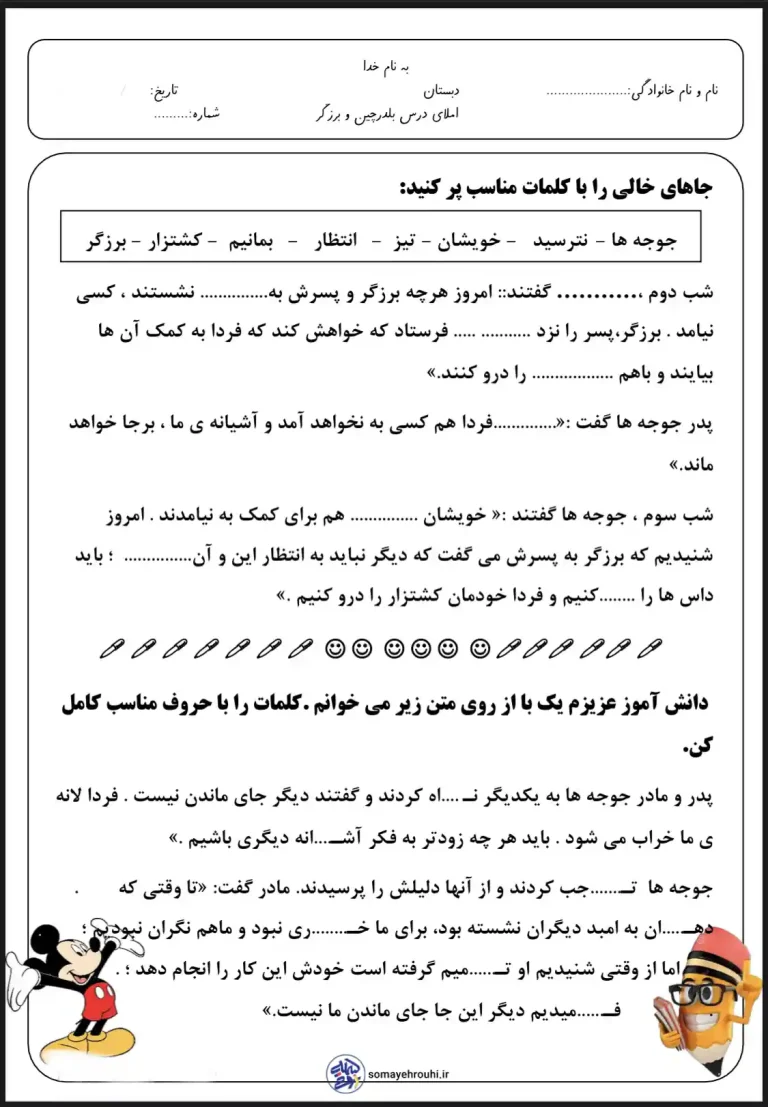 به نام خدا
نام و نام خانوادگی:..................... دبستان تاریخ: /
املای درس بلدرچین و برزگر شماره:.........
جاهای خالی را با کلمات مناسب پر کنید:
جوجه ها - نترسید - خویشان - تیز - انتظار - بمانیم - کشتزار - برزگر
شب دوم ،........... گفتند:: امروز هرچه برزگر و پسرش به............... نشستند ، کسی
نیامد . برزگر،پسر را نزد ........... ..... فرستاد که خواهش کند که فردا به کمک آن ها
بیایند و باهم .................. را درو کنند.»
پدر جوجه ها گفت :«..............فردا هم کسی به نخواهد آمد و آشیانه ی ما ، برجا خواهد
ماند.»
شب سوم ، جوجه ها گفتند :« خویشان ............... هم برای کمک به نیامدند . امروز
شنیدیم که برزگر به پسرش می گفت که دیگر نباید به انتظار این و آن............... ؛ باید
داس ها را ........کنیم و فردا خودمان کشتزار را درو کنیم .»
دانش آموز عزیزم یک با از روی متن زیر می خوانم .کلمات را با حروف مناسب کامل
کن.
پدر و مادر جوجه ها به یکدیگر نـ ....اه کردند و گفتند دیگر جای ماندن نیست . فردا لانه
ی ما خراب می شود . باید هر چه زودتر به فکر آشــ...انه دیگری باشیم .»
جوجه ها تـ......جب کردند و از آنها دلیلش را پرسیدند. مادر گفت: «تا وقتی که .
دهـ....ان به امبد دیگران نشسته بود، برای ما خـ.......ری نبود و ماهم نگران نبودیم ؛
اما از وقتی شنیدیم او تـ.....میم گرفته است خودش این کار را انجام دهد ؛ .
فـ.....میدیم دیگر این جا جای ماندن ما نیست.»
somayehrouhi.ir